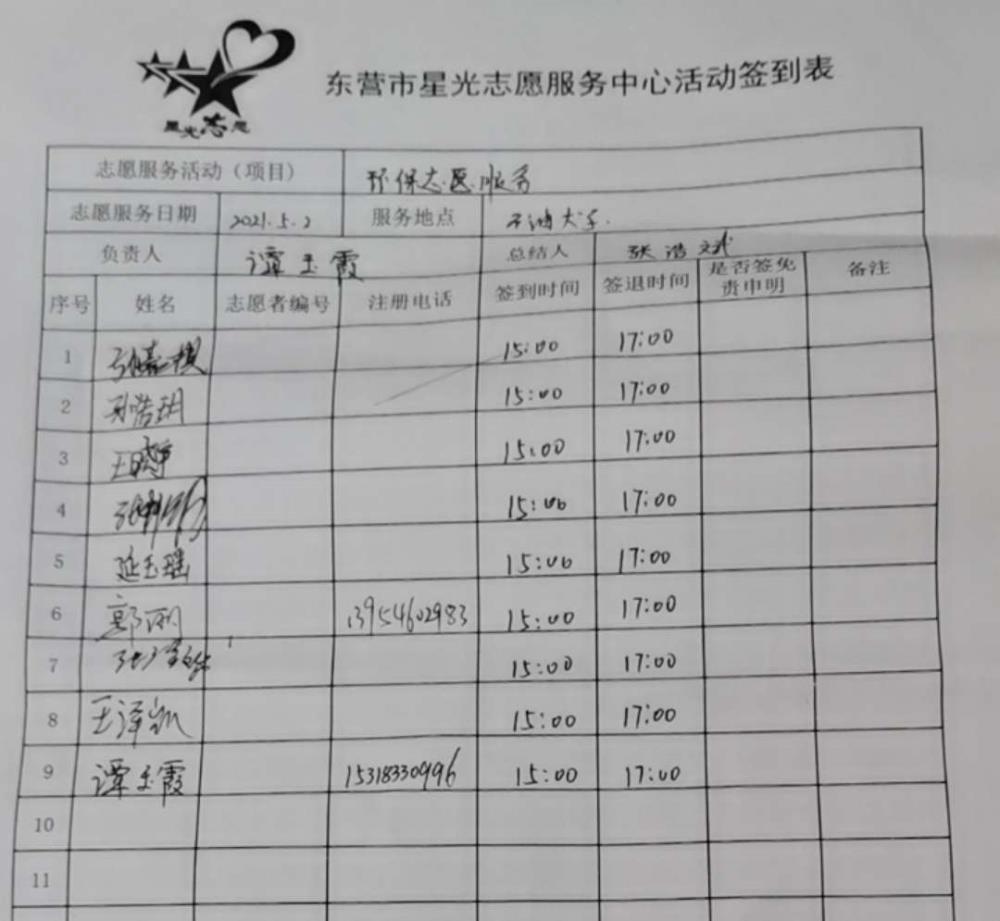 星光志愿
东营市星光志愿服务中心活动签到表
志愿服务活动（项目） 环保志愿服务
志愿服务日期 2021.5.2 服务地点 石油大学.
负责人 谭玉霞 总结人 张浩斌
序号 姓名 志愿者编号 注册电话 签到时间 签退时间 是否签免责申明 备注
1 15:00 17:00
2 孙浩玥 15:00 17:00
3 15:00 17:00
4 15:00 17:00
5 延玉瑶 15:00 17:00
6 郭 13954602983 15:00 17:00
7 15:00 17:00
8 王泽凯 15:00 17:00
9 谭玉霞 15318330996 15:00 17:00
10
11